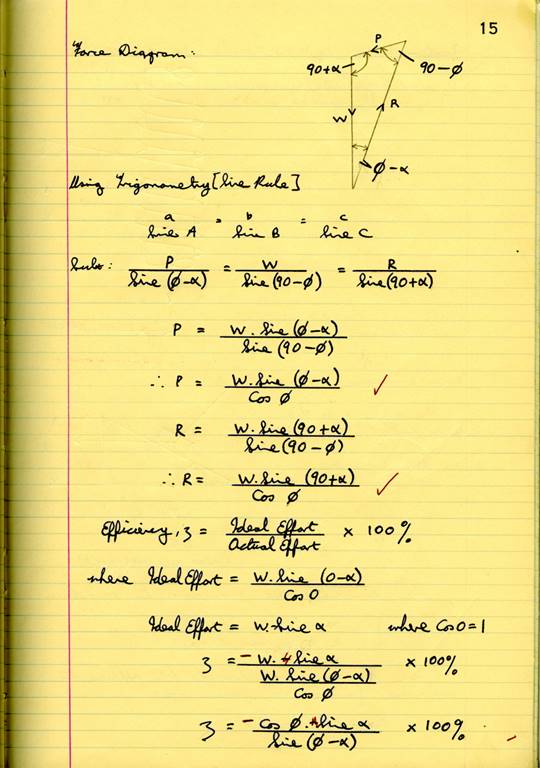 15
Force Diagram:
P
90+α
90-φ
W
R
φ-α
Using Trigonometry [Sine Rule]
a/Sine A = b/Sine B = c/Sine C
Subs: P/Sine (φ-α) = W/Sine (90-φ) = R/Sine (90+α)
P = W. Sine (φ-α)/Sine (90-φ)
∴ P = W. Sine (φ-α)/Cos φ ✓
R = W. Sine (90+α)/Sine (90-φ)
∴ R = W. Sine (90+α)/Cos φ ✓
Efficiency, ξ = Ideal Effort/Actual Effort × 100%
where Ideal Effort = W. Sine (0-α)/Cos 0
Ideal Effort = W. Sine α where Cos 0 = 1
ξ = - W. Sine α/(W. Sine (φ-α)/Cos φ) × 100%
ξ = - Cos φ. Sine α/Sine (φ-α) × 100%